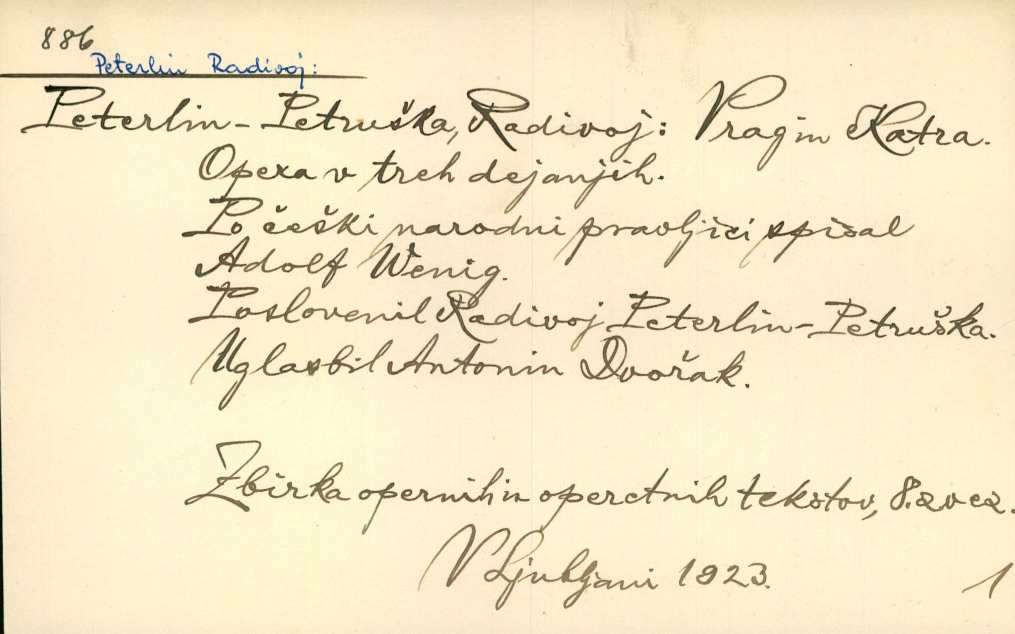 886
Peterlin Radivoj:
Peterlin-Petruška, Radivoj: Vrag in Katra.
Opera v treh dejanjih.
Po češki narodni pravljici spisal
Adolf Wenig.
Poslovenil Radivoj Peterlin-Petruška.
Uglasbil Antonin Dvořak.
Zbirka opernih in operetnih tekstov, 8. zvez.
V Ljubljani 1923.
1